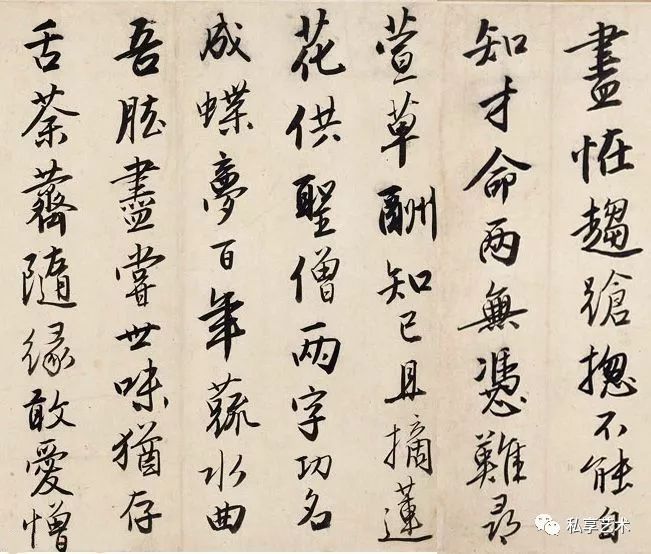 盡恠趨蹌揔不能自
知才命兩無憑難尋
萱草酬知己且摘蓮
花供聖僧兩字功名
成蝶夢百年蔬水曲
吾肱盡嘗世味猶存
舌荼薺隨緣敢愛憎
私享艺术